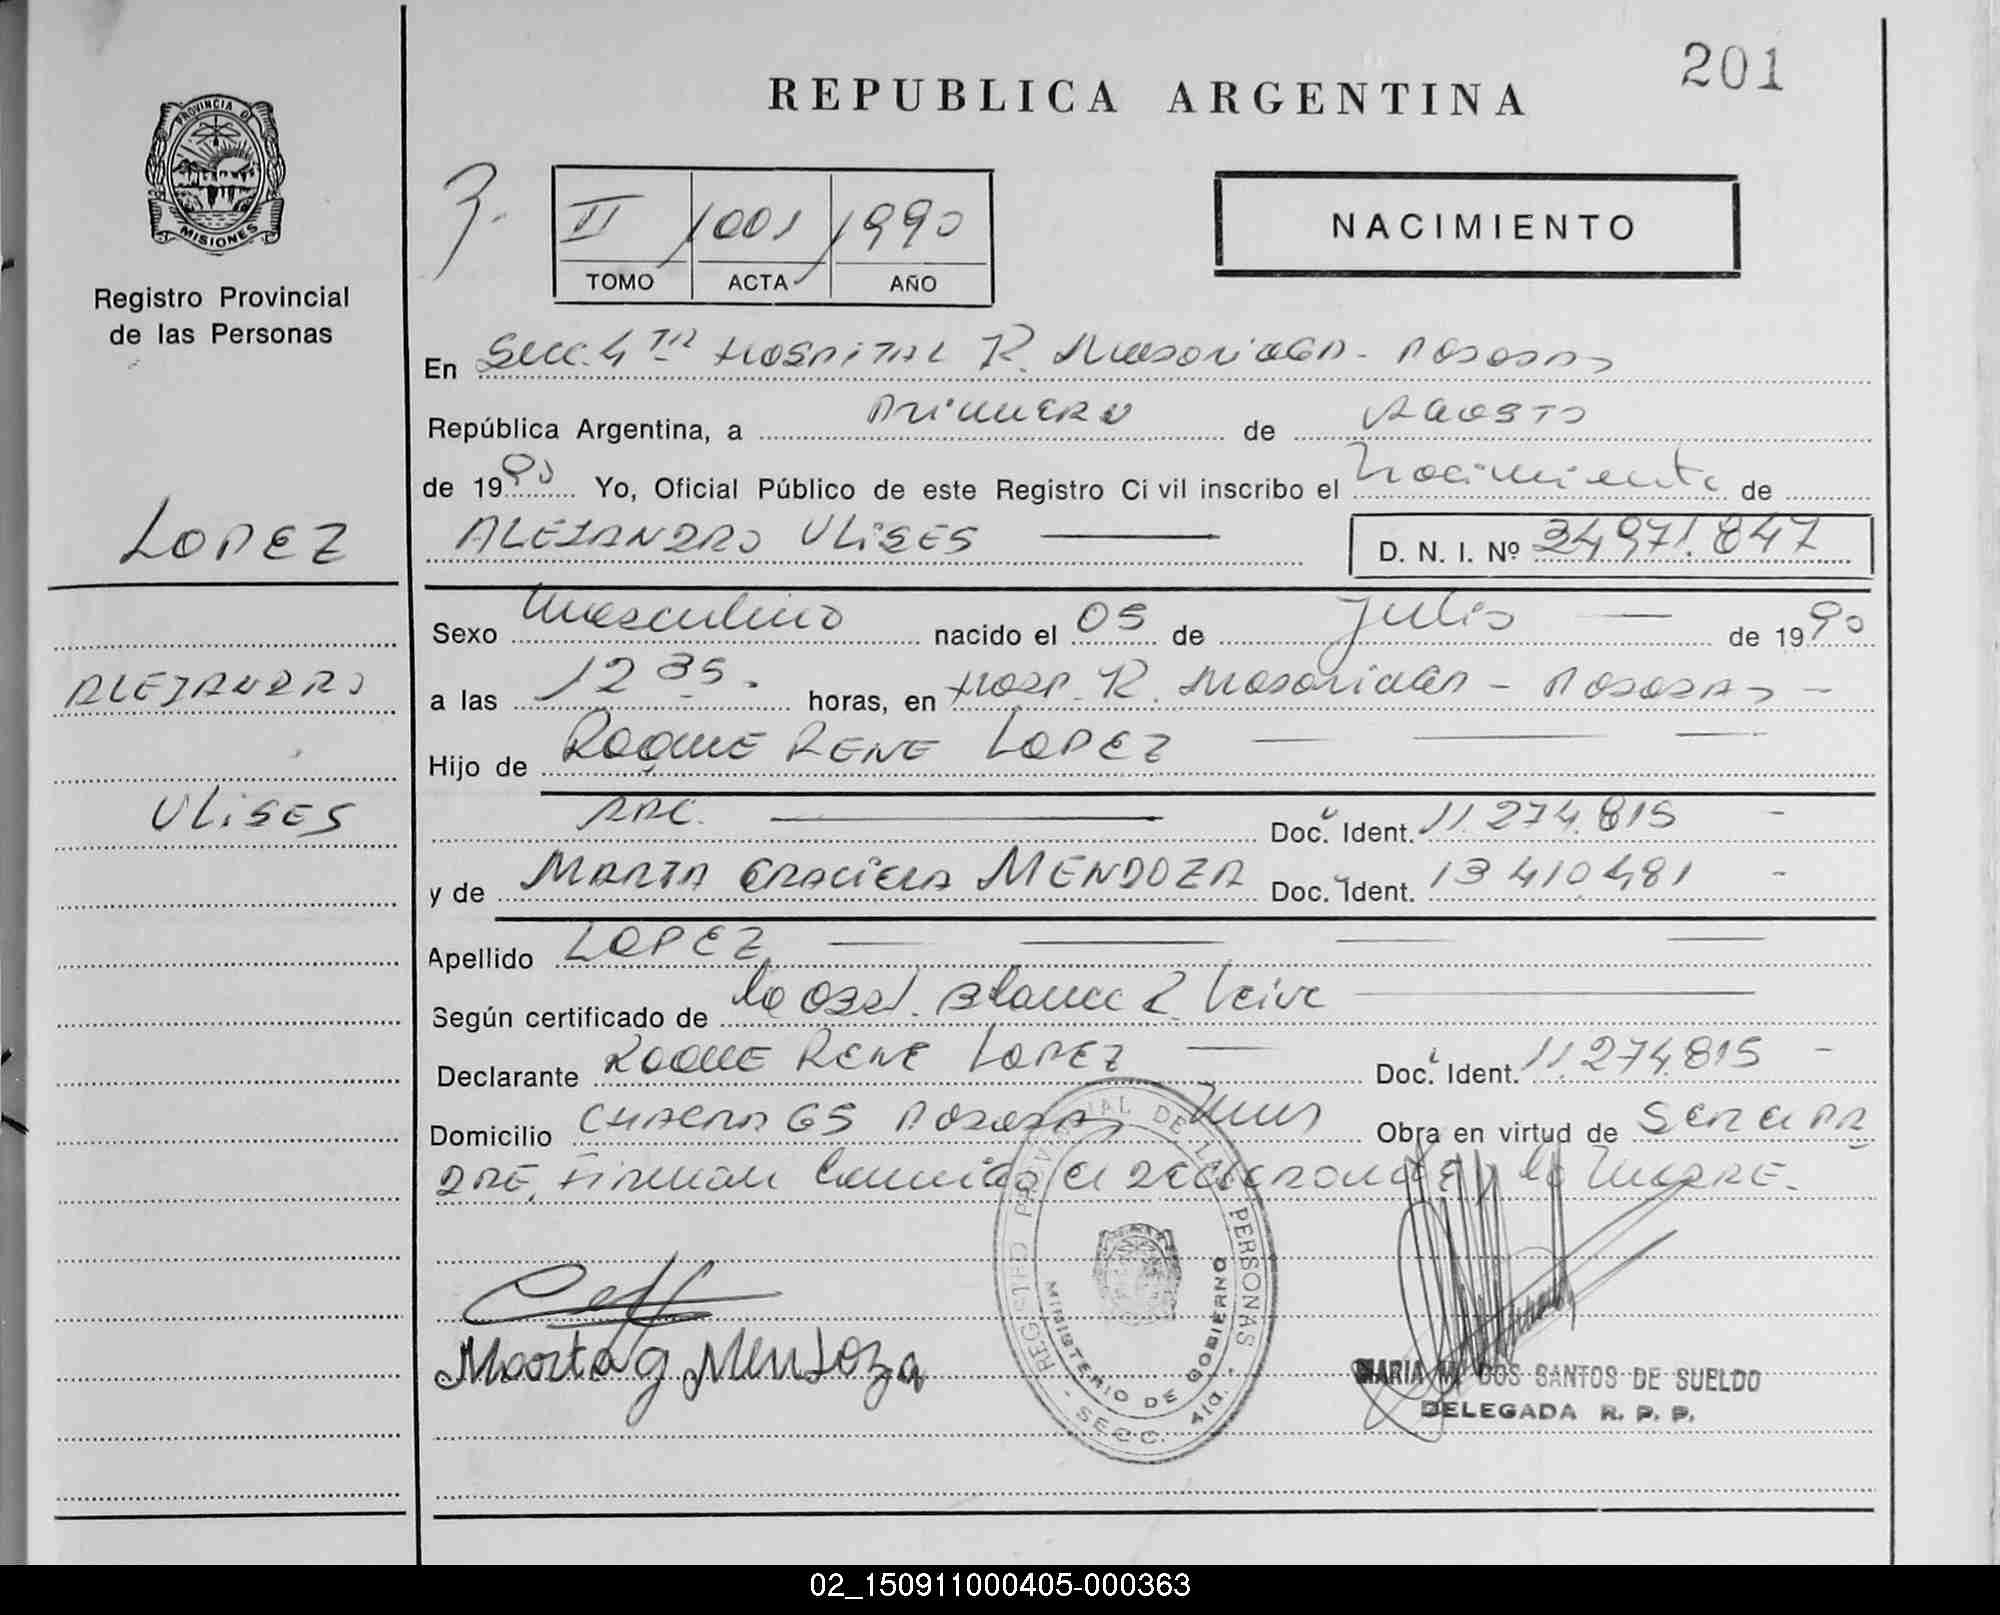 201
REPUBLICA ARGENTINA
PROVINCIA DE
MISIONES
Registro Provincial
de las Personas
II 1001 1990
TOMO ACTA AÑO
NACIMIENTO
En Secc. 4ta HOSPITAL R. Madariaga - POSADAS
República Argentina, a primero de AGOSTO
de 1990 Yo, Oficial Público de este Registro Civil inscribo el Nacimiento de
ALEJANDRO ULISES D. N. I. Nº 34971.847
LOPEZ
ALEJANDRO
ULISES
Sexo Masculino nacido el 05 de Julio de 1990
a las 12 35. horas, en HOSP. R. Madariaga - POSADAS -
Hijo de ROQUE RENE LOPEZ
Doc. Ident. 11.274.815 -
y de MARTA GRACIELA MENDOZA Doc. Ident. 13 410 481 -
Apellido LOPEZ
Según certificado de la Obst. Blanca Leiva
Declarante ROQUE RENE LOPEZ Doc. Ident. 11.274.815 -
Domicilio CHACRA 65 POSADAS Mnes Obra en virtud de SER EL PA
DRE. Firman el declarante y la MADRE.
REGISTRO PROVINCIAL DE LAS PERSONAS
MINISTERIO DE GOBIERNO
- SECC. 4ta. -
Marta g Mendoza
MARIA M. DOS SANTOS DE SUELDO
DELEGADA R. P. P.
02_150911000405-000363